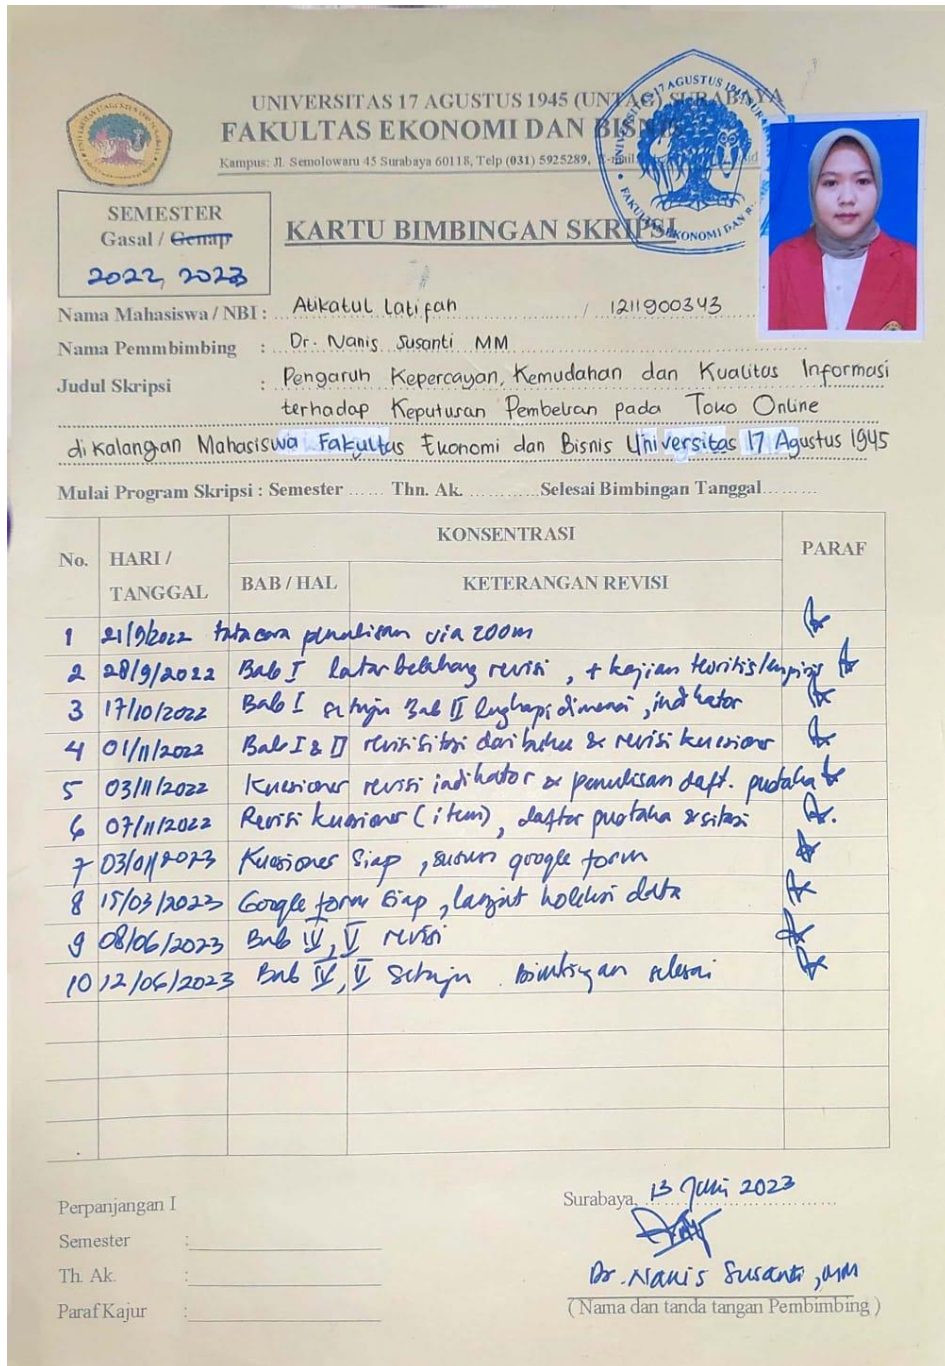 UNIVERSITAS 17 AGUSTUS 1945 (UNTAG) SURABAYA
FAKULTAS EKONOMI DAN BISNIS
Kampus: Jl. Semolowaru 45 Surabaya 60118, Telp (031) 5925289,
SEMESTER
Gasal / Genap
2022, 2023
KARTU BIMBINGAN SKRIPSI
Nama Mahasiswa / NBI : Atikatul Latifah / 1211900343
Nama Pemmbimbing : Dr. Nanis Susanti MM
Judul Skripsi : Pengaruh Kepercayan, Kemudahan dan Kualitas Informasi
terhadap Keputusan Pembelian pada Toko Online
di kalangan Mahasiswa Fakultas Ekonomi dan Bisnis Universitas 17 Agustus 1945
Mulai Program Skripsi : Semester ...... Thn. Ak. ............Selesai Bimbingan Tanggal.........
No. HARI / TANGGAL KONSENTRASI PARAF
BAB / HAL KETERANGAN REVISI
1 21/9/2022 tata cara penulisan via zoom
2 28/9/2022 Bab I latar belakang revisi, + kajian teoritis/empiris
3 17/10/2022 Bab I setuju Bab II lengkapi dimensi, indikator
4 01/11/2022 Bab I & II revisi sitasi dari buku & revisi kuesioner
5 03/11/2022 Kuesioner revisi indikator & penulisan daft. pustaka
6 07/11/2022 Revisi kuesioner (item), daftar pustaka & sitasi
7 03/01/2023 Kuesioner siap, susun google form
8 15/03/2023 Google form siap, lanjut koleksi data
9 08/06/2023 Bab IV, V revisi
10 12/06/2023 Bab IV, V setuju. Bimbingan selesai
Perpanjangan I
Semester :
Th. Ak. :
Paraf Kajur :
Surabaya, 13 Juni 2023
Dr. Nanis Susanti, MM
( Nama dan tanda tangan Pembimbing )